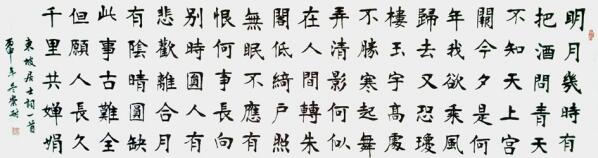 明月幾時有
把酒問青天
不知天上宮
闕今夕是何
年我欲乘風
歸去又恐瓊
樓玉宇高處
不勝寒起舞
弄清影何似
在人間轉朱
閣低綺戶照
無眠不應有
恨何事長向
別時圓人有
悲歡離合月
有陰晴圓缺
此事古難全
但願人長久
千里共嬋娟
東坡居士詞一首
丙申年冬